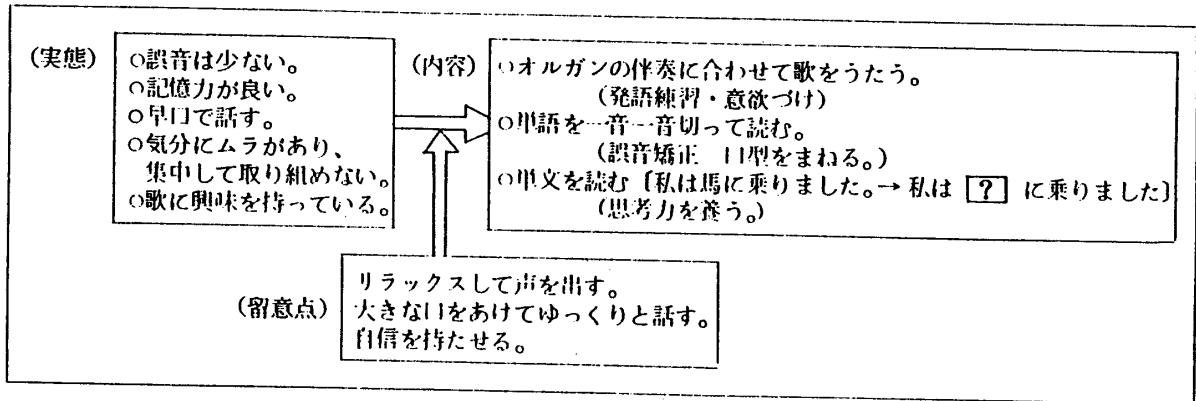 (実態)
○誤音は少ない。
○記憶力が良い。
○早口で話す。
○気分にムラがあり、
集中して取り組めない。
○歌に興味を持っている。
(内容)
○オルガンの伴奏に合わせて歌をうたう。
(発語練習・意欲づけ)
○単語を一音一音切って読む。
(誤音矯正 口型をまねる。)
○単文を読む〔私は馬に乗りました。→私は ? に乗りました〕
(思考力を養う。)
(留意点)
リラックスして声を出す。
大きな口をあけてゆっくりと話す。
自信を持たせる。